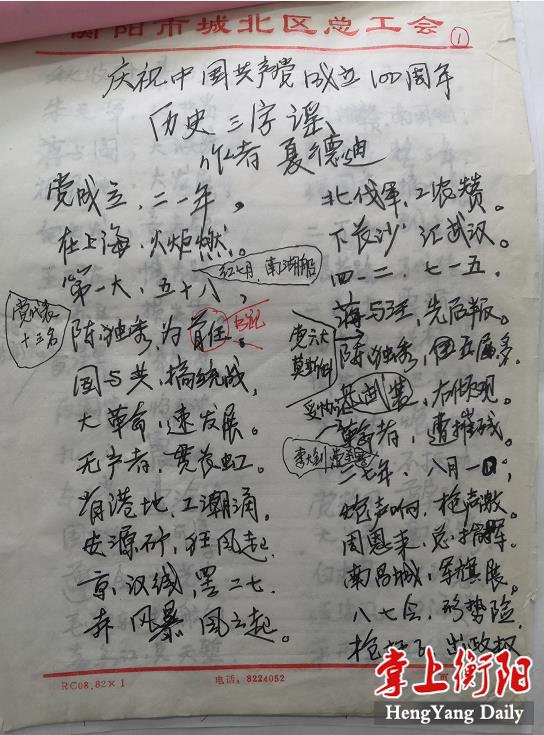 衡阳市城北区总工会
①
庆祝中国共产党成立100周年
历史三字谣
作者 夏德迪
党成立，二一年，
在上海，火炬燃。
红七月，南湖船
第一大，五十八，
党代表
十三名
陈独秀，为首任。
书记
国与共，搞统战，
大革命，速发展。
无产者，贯长虹。
省港地，工潮涌。
安源矿，狂风起，
京汉线，罢二七。
奔风暴，风云起。
北伐军，工农赞。
下长沙，汇武汉。
四一二，七一五，
蒋与汪，先后叛。
党六大
莫斯科
陈独秀，
武装，右倾观。
革命者，遭摧残。
李大钊
二七年，八月一日，
炮声响，枪声激。
周恩来，总指挥。
南昌城，军旗展。
八七会，形势险，
枪杆子，出政权
RC08.82×1
电话：8224052
页
掌上衡阳
HengYang Daily